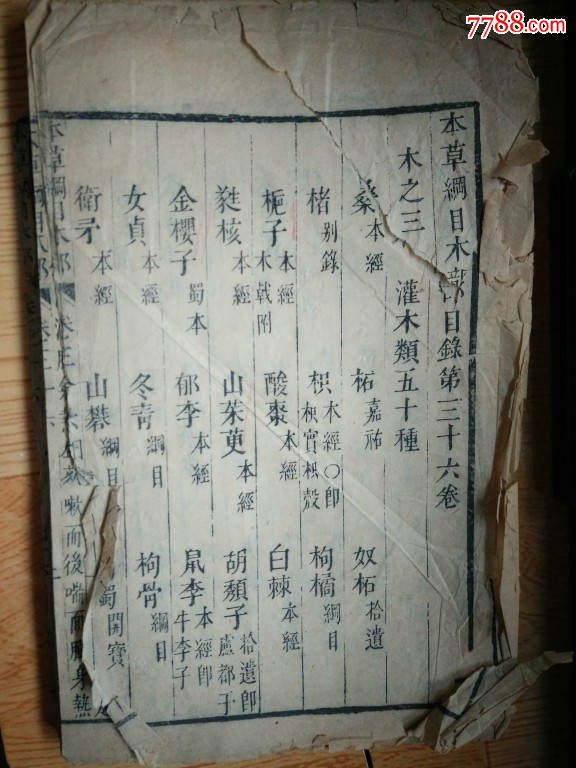 7788.com
本草綱目木部目錄第三十六卷
木之三 灌木類五十種
桑本經 柘嘉祐 奴柘拾遺
楮别錄 枳本經〇卽枳實枳殼 枸橘綱目
梔子本經木戟附 酸棗本經 白棘本經
蕤核本經 山茱萸本經 胡頹子拾遺卽盧都子
金櫻子蜀本 郁李本經 鼠李本經卽牛李子
女貞本經 冬青綱目 枸骨綱目
衛矛本經 山礬綱目
蜀 開寶
本草綱目木部
嗽 而後喘 身熱